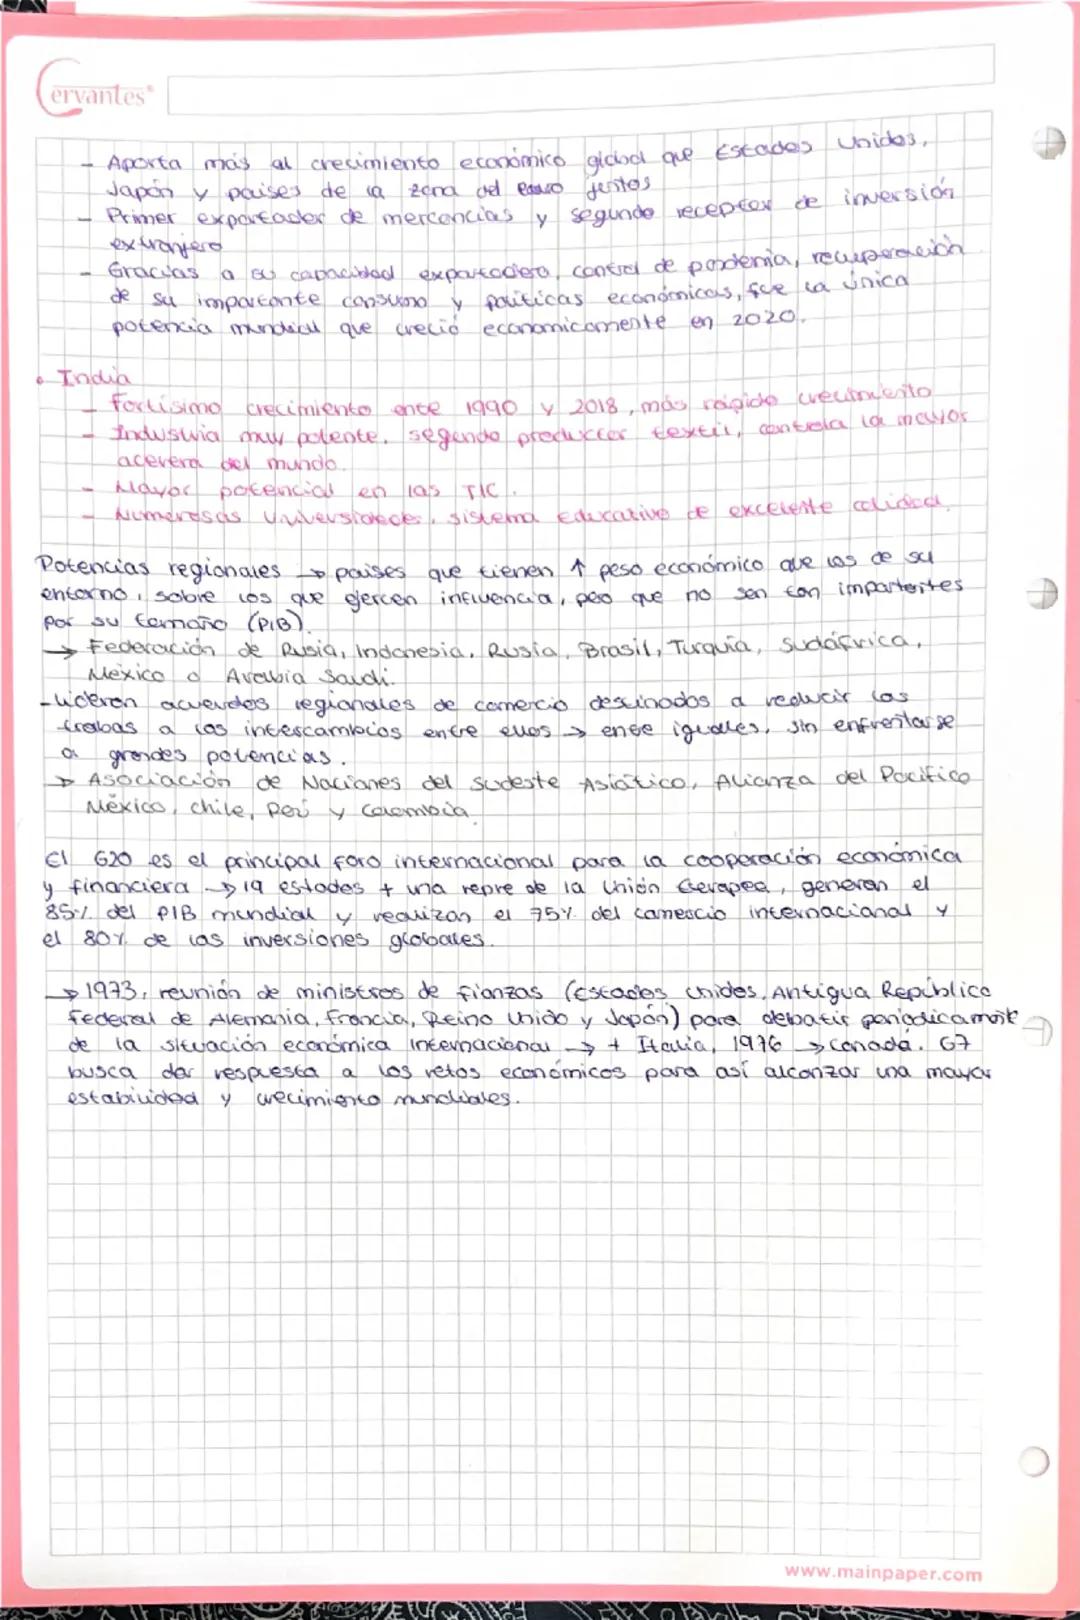 Cervantes®
- Aporta más al crecimiento económico global que Estados Unidos,
Japón y paises de la zona del euro juntos
- Primer exportador de mercancias y segundo receptor de inversión
extranjero
- Gracias a su capacidad exportadora, control de pandemia, recuperación
de su importante consumo y políticas económicas, fue la única
potencia mundial que creció económicamente en 2020.
• India
- Fortísimo crecimiento ente 1990 y 2018, más rápido crecimiento
- Industria muy potente, segundo productor textil, controla la mayor
acerera del mundo.
- Mayor potencial en las TIC.
- Numerosas Universidades, sistema Educativo de excelente calidad.
Potencias regionales → paises que tienen ↑ peso económico que los de su
entorno, sobre los que ejercen influencia, peo que no son tan importentes
por su tamaño (PIB).
→ Federación de Rusia, Indonesia, Rusia, Brasil, Turquía, Sudáfrica,
México o Arabia Saudi.
- Lideran acuerdos regionales de comercio destinados a reducir las
trabas a los intercambios entre ellos → ente iguales, sin enfrentarse
a grandes potencias.
→ Asociación de Naciones del Sudeste Asiático, Alianza del Pacífico
México, Chile, Perú y Colombia.
El G20 es el principal foro internacional para la cooperación económica
y financiera → 19 estados + una repre de la Unión Europea, generan el
85% del PIB mundial y realizan el 75% del comercio internacional y
el 80% de las inversiones globales.
→ 1973, reunión de ministros de fianzas (Estados Unidos, Antigua República
Federal de Alemania, Francia, Reino Unido y Japón) para debatir periódicamente
de la situación económica internacional → + Italia, 1976 → Canadá. G7
busca dar respuesta a los retos económicos para así alcanzar una mayor
estabilidad y crecimiento mundiales.
www.mainpaper.com